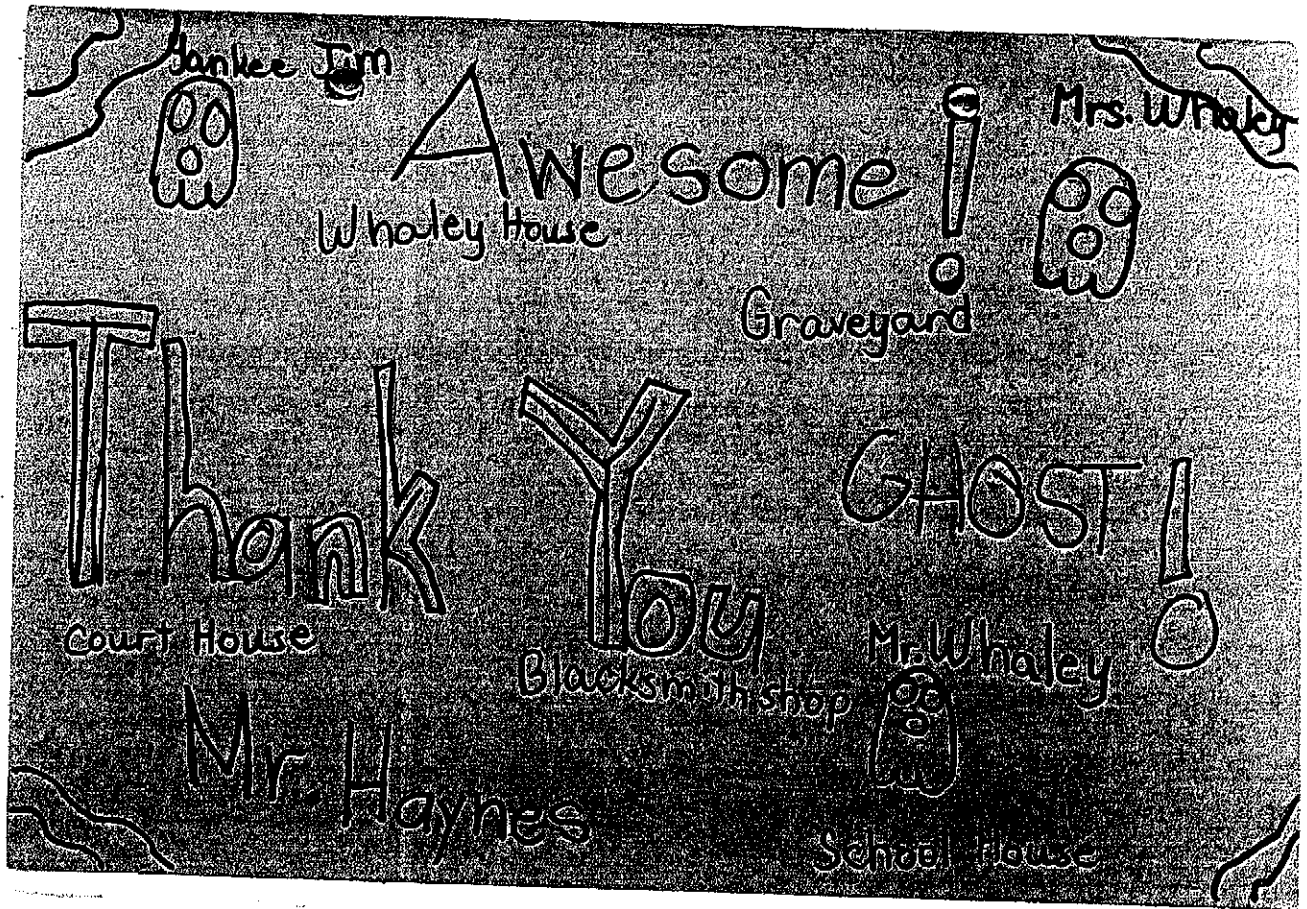 Yankee Jim
Awesome!
Mrs. Whaley
Whaley House
Graveyard
Thank You
GHOST!
Court House
Blacksmith shop
Mr. Whaley
Mr. Haynes
School House